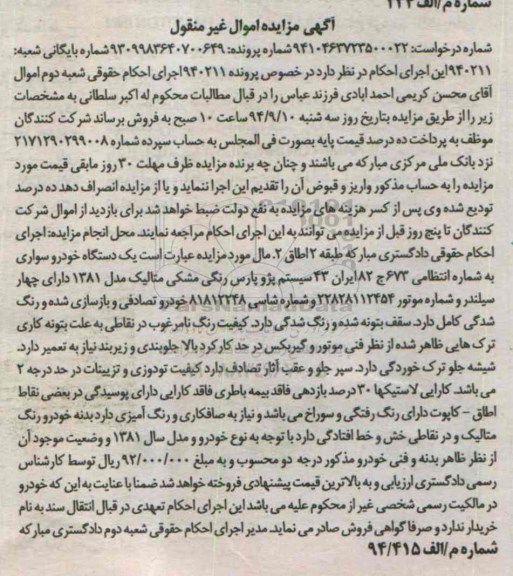 شماره م/الف ۲۲۳
آگهی مزایده اموال غیر منقول
شماره درخواست: ۹۴۱۰۴۶۳۷۲۳۵۰۰۰۲۲ شماره پرونده: ۹۳۰۹۹۸۳۶۴۰۷۰۰۶۴۹ شماره بایگانی شعبه:
۹۴۰۲۱۱ این اجرای احکام در نظر دارد در خصوص پرونده ۹۴۰۲۱۱ اجرای احکام حقوقی شعبه دوم اموال
آقای محسن کریمی احمد ابادی فرزند عباس را در قبال مطالبات محکوم له اکبر سلطانی به مشخصات
زیر را از طریق مزایده بتاریخ روز سه شنبه ۹۴/۹/۱۰ ساعت ۱۰ صبح به فروش برساند شرکت کنندگان
موظف به پرداخت ده درصد قیمت پایه بصورت فی المجلس به حساب سپرده شماره ۲۱۷۱۲۹۰۲۹۹۰۰۸
نزد بانک ملی مرکزی مبارکه می باشند و چنان چه برنده مزایده ظرف مهلت ۳۰ روز مابقی قیمت مورد
مزایده را به حساب مذکور واریز و قبوض آن را تقدیم این اجرا ننماید و یا از مزایده انصراف دهد ده درصد
تودیع شده وی پس از کسر هزینه های مزایده به نفع دولت ضبط خواهد شد برای بازدید از اموال شرکت
کنندگان تا پنج روز قبل از مزایده می توانند به این اجرای احکام مراجعه نمایند. محل انجام مزایده: اجرای
احکام حقوقی دادگستری مبارکه طبقه ۲ اطاق ۲. مال مورد مزایده عبارت است یک دستگاه خودرو سواری
به شماره انتظامی ۶۷۳ ج ۸۲ ایران ۴۳ سیستم پژو پارس رنگی مشکی متالیک مدل ۱۳۸۱ دارای چهار
سیلندر و شماره موتور ۲۲۸۲۸۱۱۲۴۵۴ و شماره شاسی ۸۱۸۱۲۲۴۸ خودرو تصادفی و بازسازی شده و رنگ
شدگی کامل دارد. سقف بتونه شده و رنگ شدگی دارد. کیفیت رنگ نامرغوب در نقاطی به علت بتونه کاری
ترک هایی ظاهر شده از نظر فنی موتور و گیربکس در حد کارکرد بالا جلوبندی و زیربند نیاز به تعمیر دارد.
شیشه جلو ترک خوردگی دارد. سپر جلو و عقب آثار تصادف دارد کیفیت تودوزی و تزیینات در حد درجه ۲
می باشد. کارایی لاستیکها ۳۰ درصد بازدهی فاقد بیمه باطری فاقد کارایی دارای پوسیدگی در بعضی نقاط
اطاق - کاپوت دارای رنگ رفتگی و سوراخ می باشد و نیاز به صافکاری و رنگ آمیزی دارد بدنه خودرو رنگ
متالیک و در نقاطی خش و خط افتادگی دارد با توجه به نوع خودرو و مدل سال ۱۳۸۱ و وضعیت موجود آن
از نظر ظاهر بدنه و فنی خودرو مذکور درجه دو محسوب و به مبلغ ۹۲/۰۰۰/۰۰۰ ریال توسط کارشناس
رسمی دادگستری ارزیابی و به بالاترین قیمت پیشنهادی فروخته خواهد شد ضمنا با عنایت به این که خودرو
در مالکیت رسمی شخصی غیر از محکوم علیه می باشد این اجرای احکام تعهدی در قبال انتقال سند به نام
خریدار ندارد و صرفا گواهی فروش صادر می نماید. مدیر اجرای احکام حقوقی شعبه دوم دادگستری مبارکه
شماره م/الف ۹۴/۴۱۵